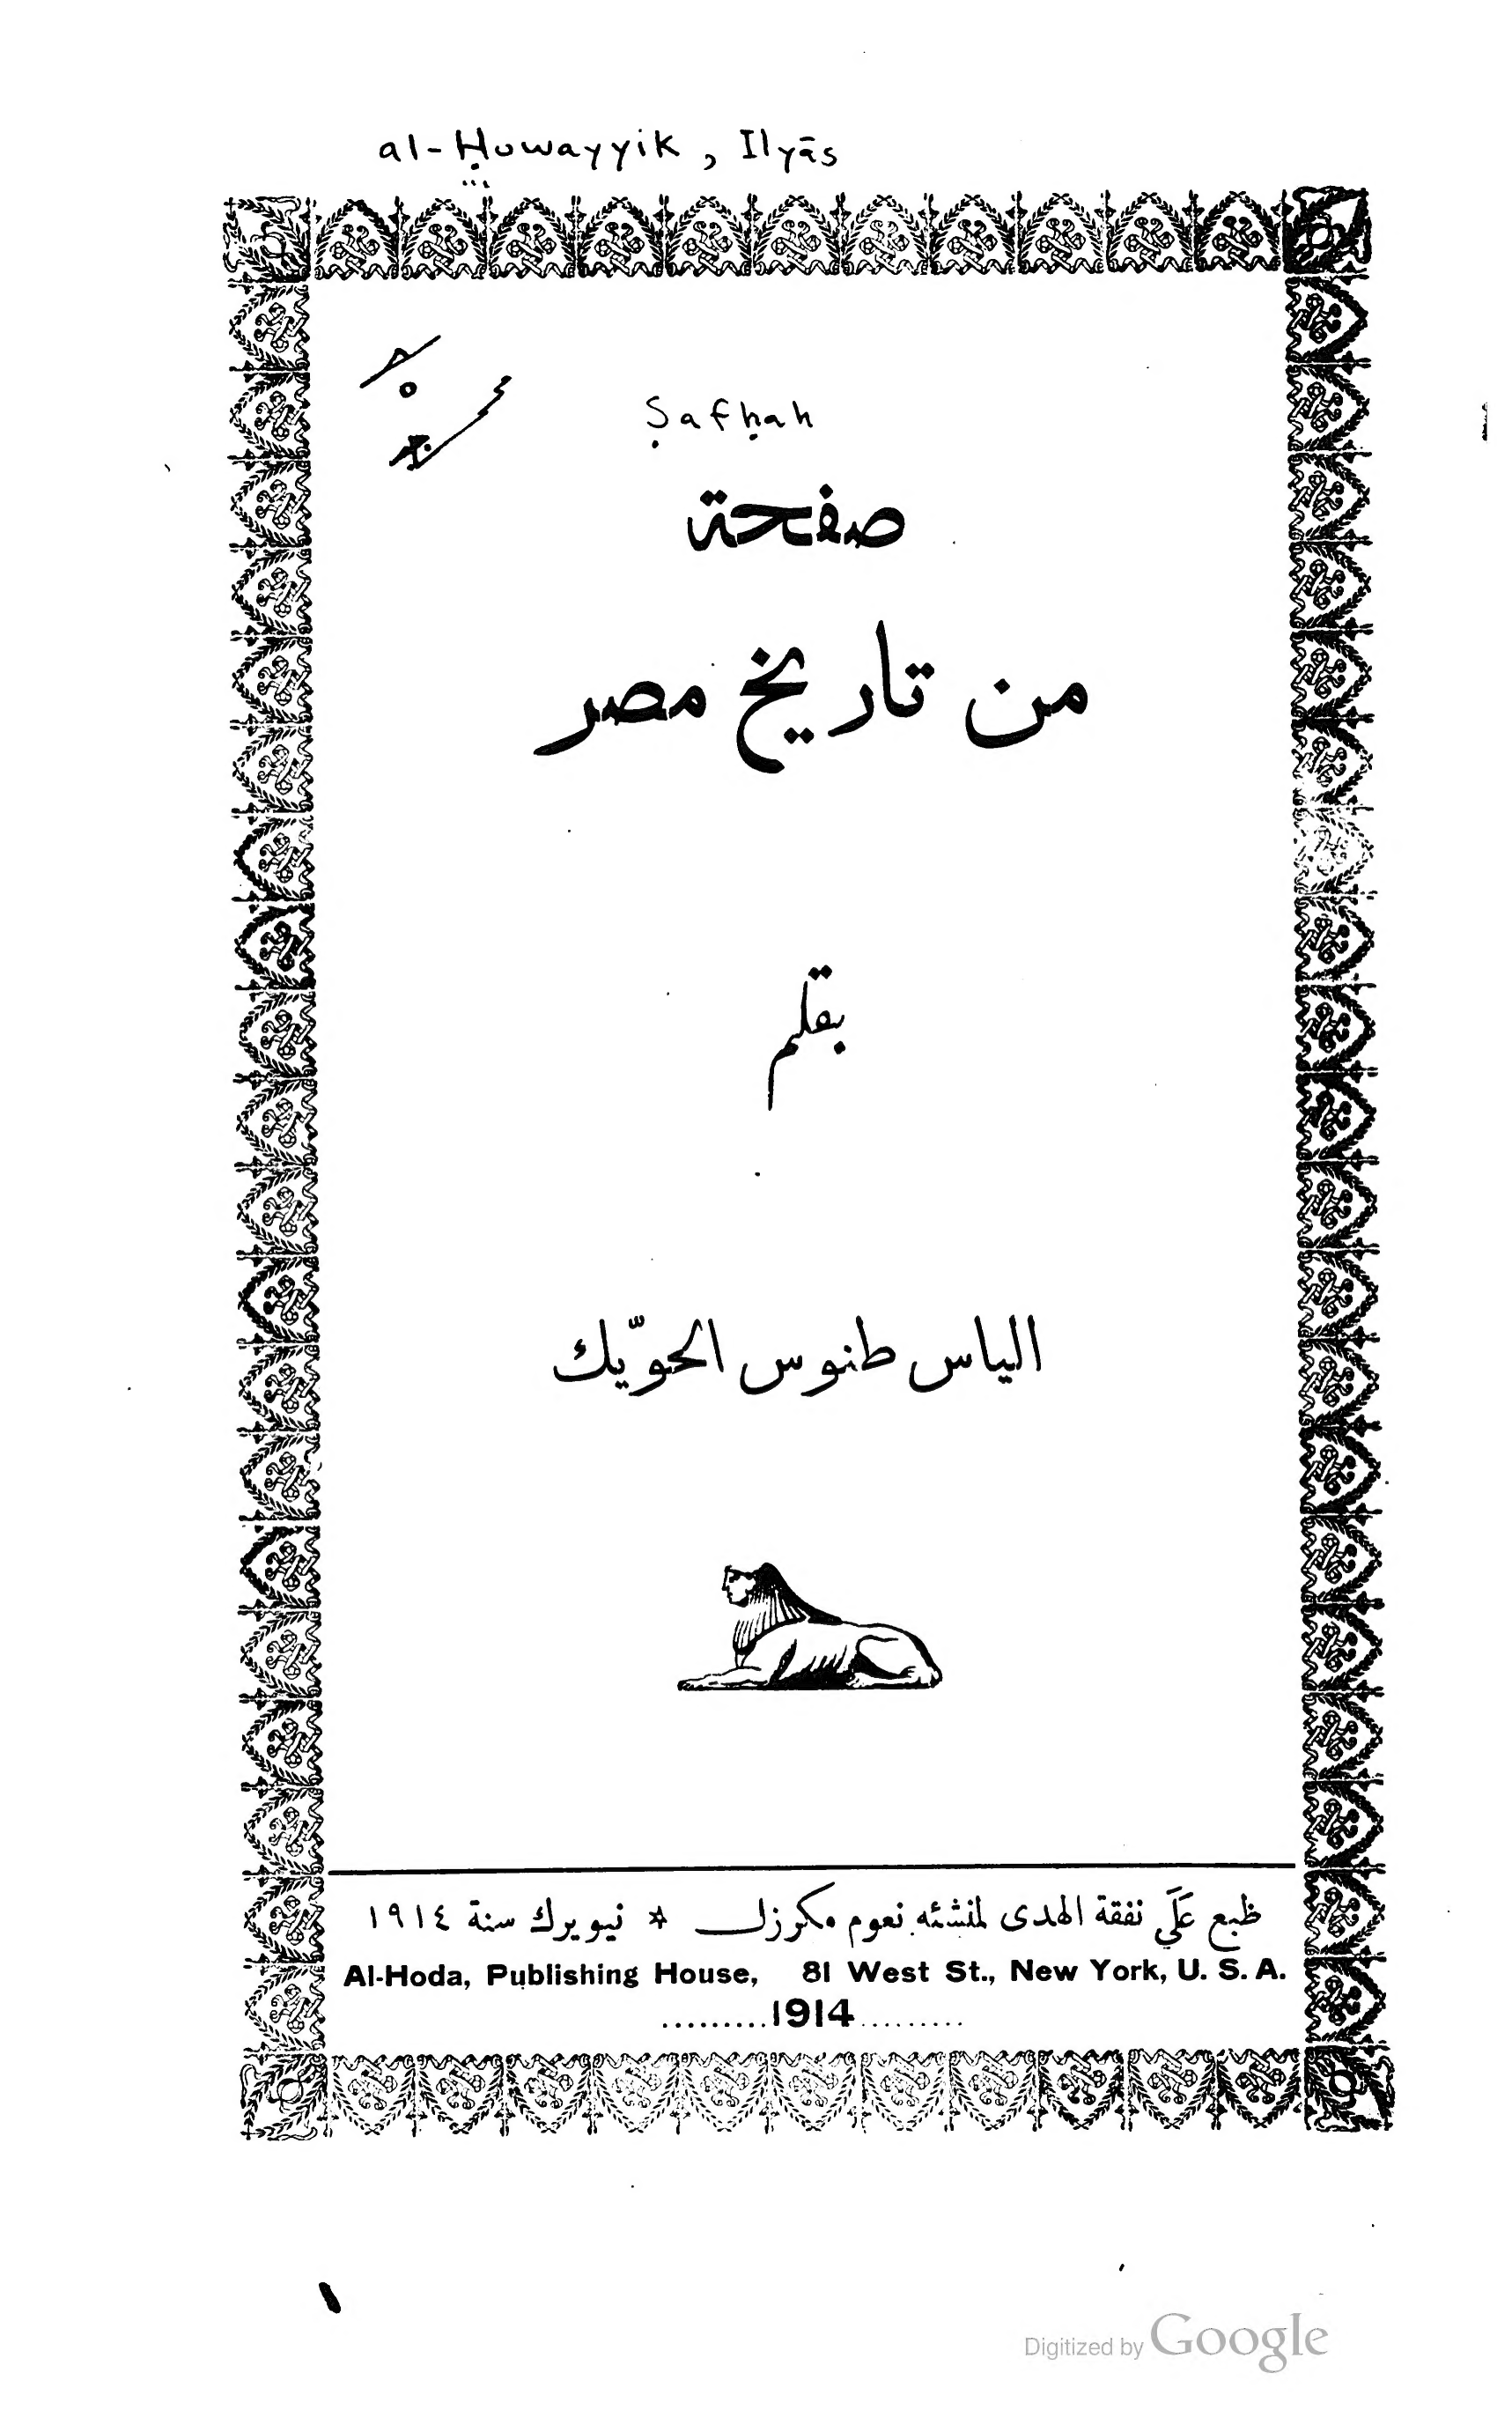 al-Ḥuwayyik, Ilyās
Ṣafḥah
صفحة
من تاريخ مصر
بقلم
الياس طنوس الحوّيك
طبع عَلَى نفقة الهدى لمنشئه نعوم مكرزل * نيويرك سنة ١٩١٤
Al-Hoda, Publishing House, 81 West St., New York, U. S. A.
.........1914.........
Digitized by Google